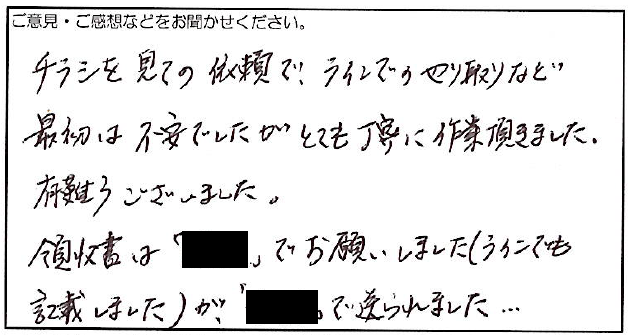 ご意見・ご感想などをお聞かせください。
チラシを見ての依頼で、ラインでのやり取りなど
最初は不安でしたがとても丁寧に作業頂きました。
有難うございました。
領収書は「」でお願いしました(ラインでも
記載しました)が、「」で送られました…